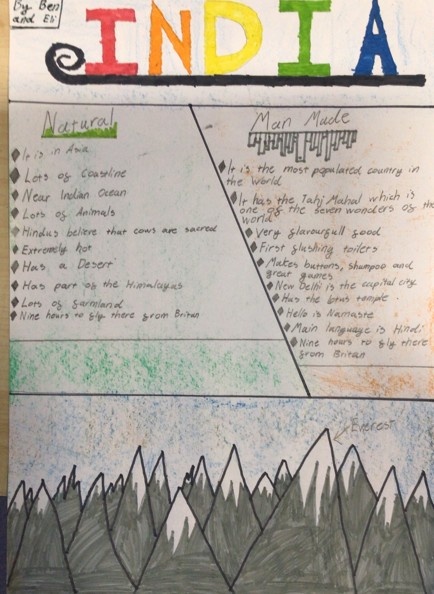 By Ben
and Eli
INDIA
Natural
It is in Asia
Lots of Coastline
Near Indian Ocean
Lots of Animals
Hindus believe that cows are sacred
Extremely hot
Has a Desert
Has part of the Himalayas
Lots of farmland
Nine hours to fly there from Britan
Man Made
It is the most populated country in
the World
It has the Tahj Mahal which is
one of the seven wonders of the
world
Very flavourfull food
First flushing toilets
Makes buttons, shampoo and
great games
New Delhi is the capital city
Has the lotus temple
Hello is Namaste
Main language is Hindi
Nine hours to fly there
from Britan
Everest